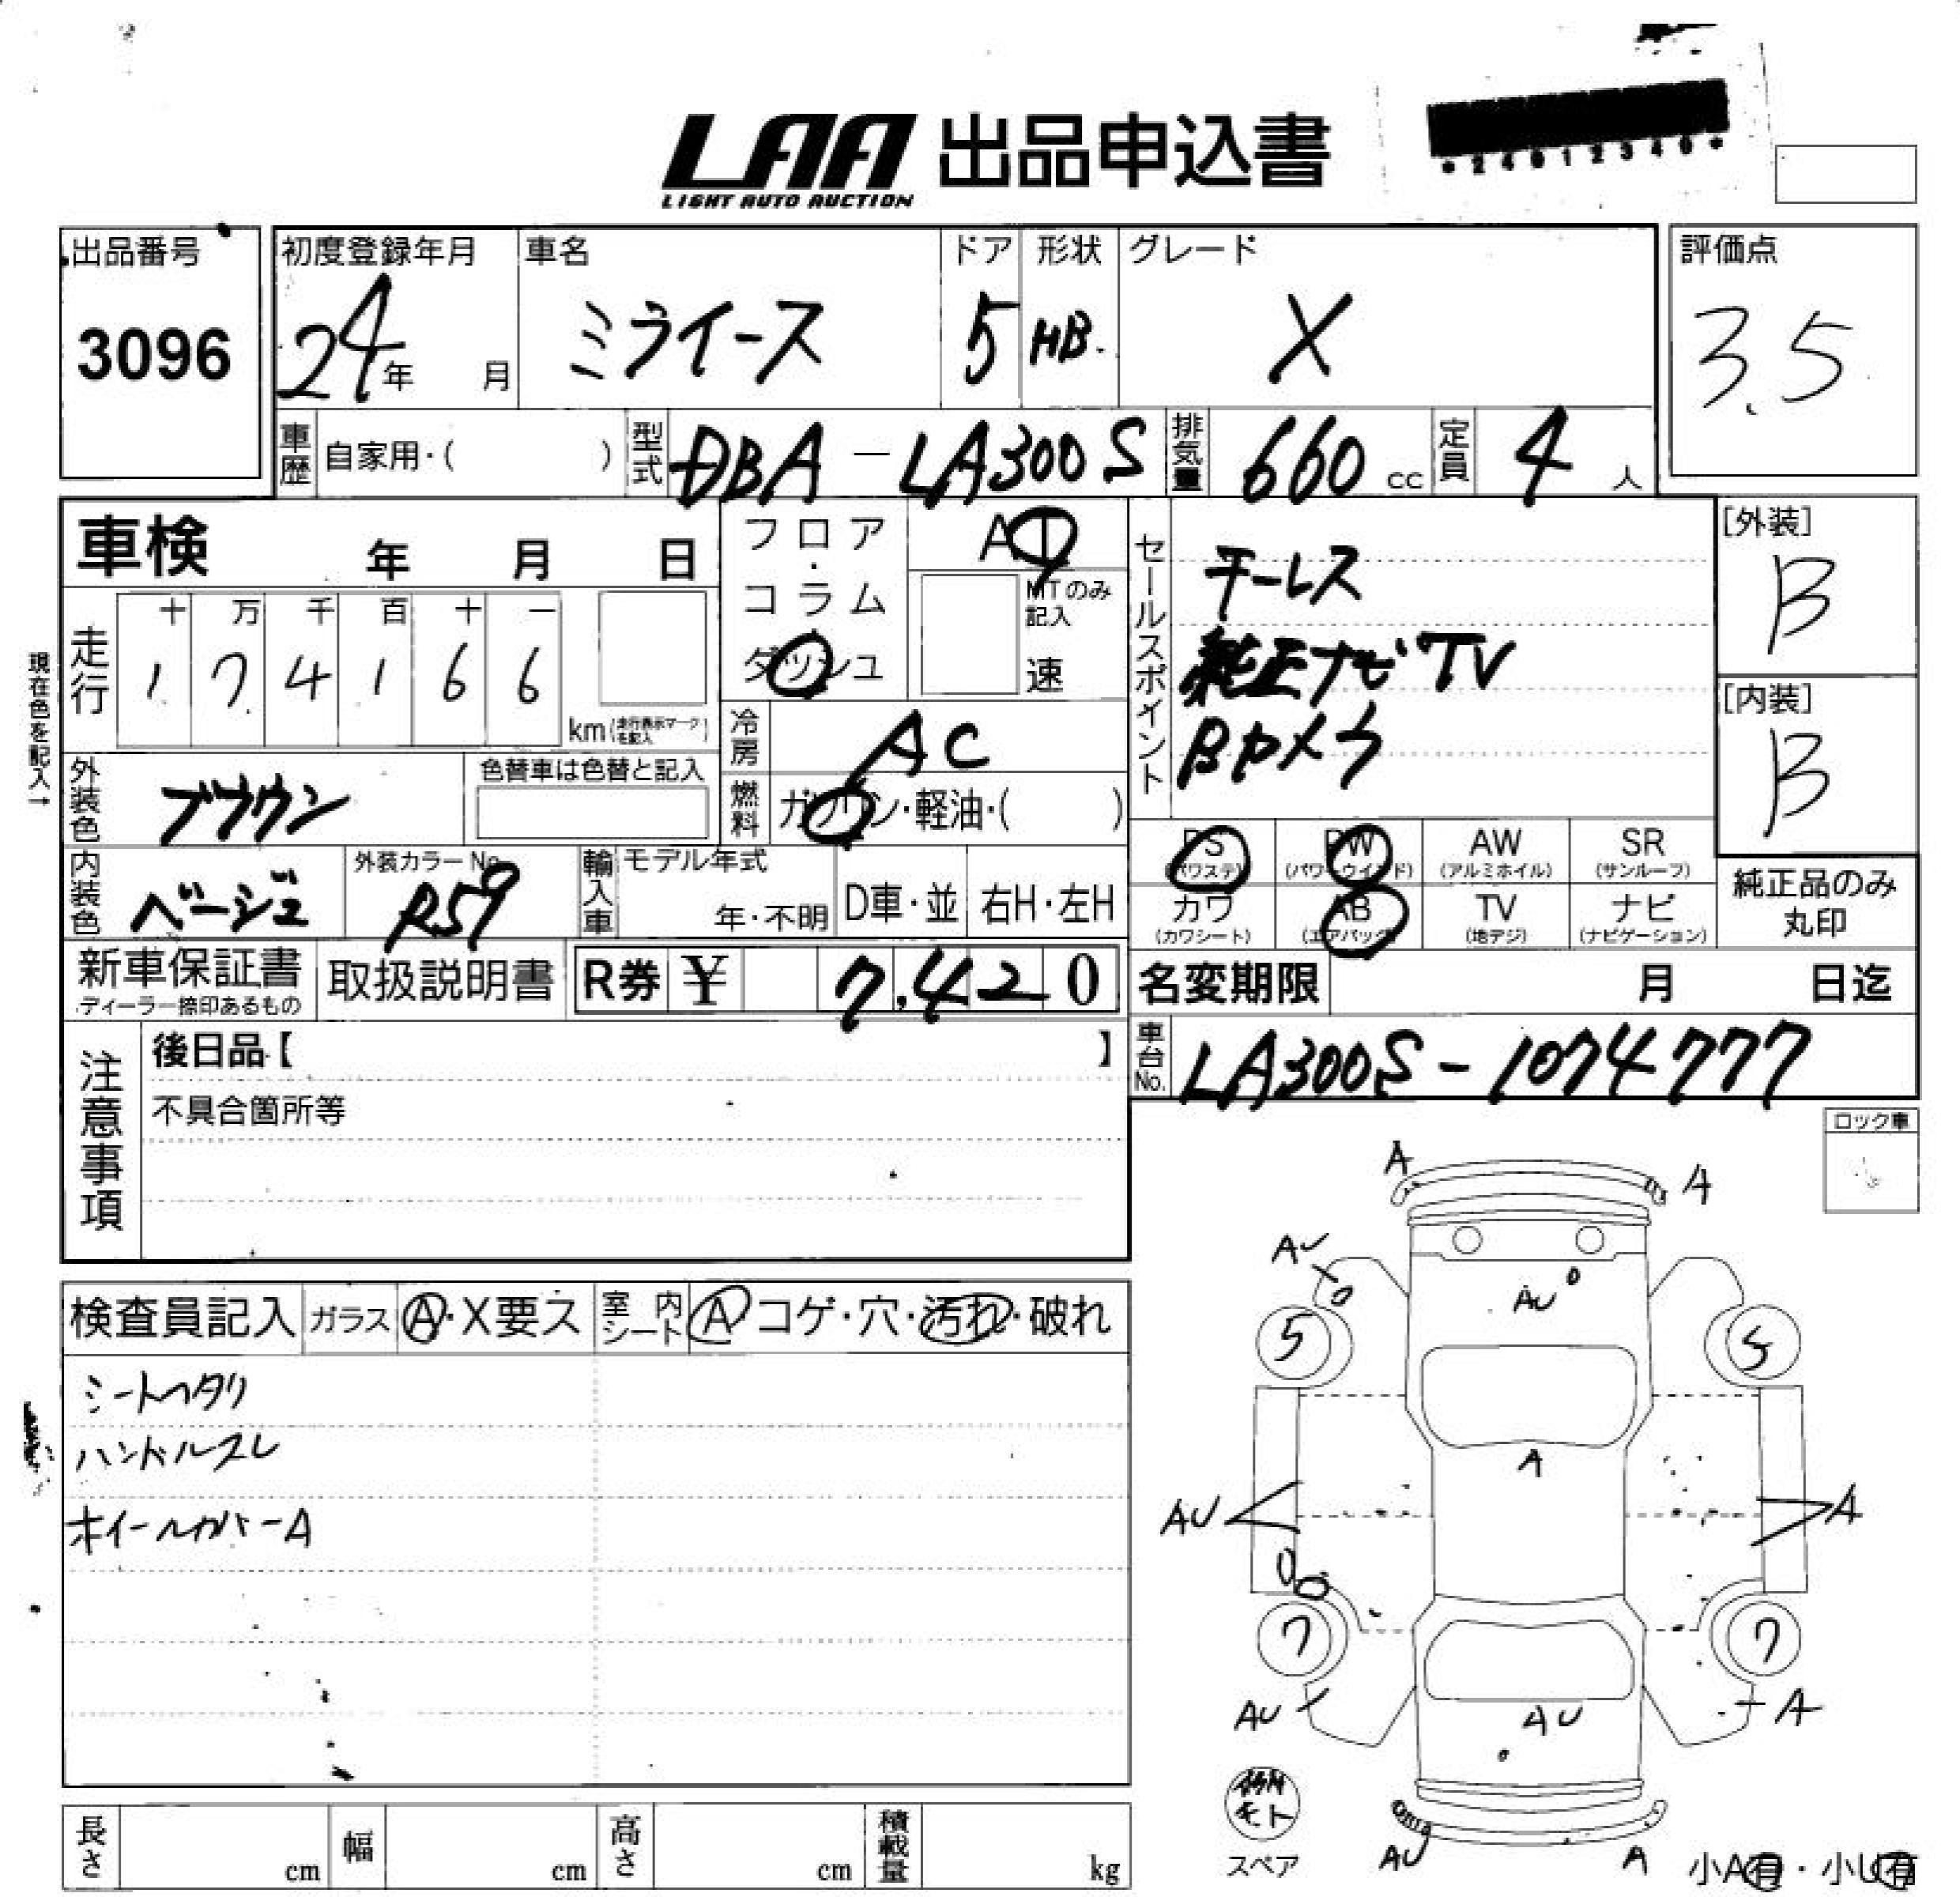 LAA 出品申込書
LIGHT AUTO AUCTION
*24012340*
出品番号
3096
初度登録年月
24年 月
車名
ミライース
ドア
5
形状
HB.
グレード
X
評価点
3.5
車歴 自家用・( )
型式 DBA-LA300S
排気量 660 cc
定員 4 人
車検 年 月 日
フロア・コラム・ダッシュ
AT
MTのみ記入
速
セールスポイント
キーレス
純正ナビTV
Bカメラ
[外装]
B
[内装]
B
現在色を記入→
走行
十 万 千 百 十 一
1 7 4 1 6 6
km(走行表示マークを記入)
冷房 AC
外装色 ブラウン
色替車は色替と記入
燃料 ガソリン・軽油・( )
内装色 ベージュ
外装カラーNo.
R59
輸入車
モデル年式
年・不明
D車・並
右H・左H
PS (パワステ)
PW (パワーウインド)
AW (アルミホイル)
SR (サンルーフ)
カワ (カワシート)
AB (エアバッグ)
TV (地デジ)
ナビ (ナビゲーション)
純正品のみ
丸印
新車保証書
ディーラー捺印あるもの
取扱説明書
R券 ¥ 7,420
名変期限 月 日迄
注意事項
後日品【 】
不具合箇所等
車台No. LA300S-1074777
ロック車
検査員記入
ガラス Ⓐ・X要ス
室内シート Ⓐコゲ・穴・汚れ・破れ
シートヘタリ
ハンドルスレ
ホイールカバーA
A
A
AU
AU
5
5
A
AU
A
7
7
AU
AU
A
AU
A
スペア
小A有・小U有
長さ cm
幅 cm
高さ cm
積載量 kg